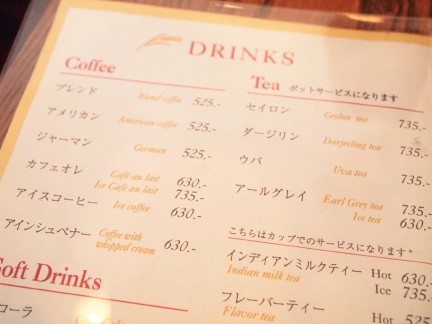 DRINKS
Coffee
ブレンド Blend coffee 525.-
アメリカン American coffee 525.-
ジャーマン German 525.-
カフェオレ Café au lait 630.-
Ice Café au lait 735.-
アイスコーヒー Ice coffee 630.-
アインシュペナー Coffee with whipped cream 630.-
Soft Drinks
コーラ
Tea ポットサービスになります
セイロン Ceylon tea 735.-
ダージリン Darjeeling tea 735.-
ウバ Uva tea 735.-
アールグレイ Earl Grey tea 735.-
Ice tea 630.-
こちらはカップでのサービスになります
インディアンミルクティー Hot 630.-
Indian milk tea Ice 735.-
フレーバーティー Hot 525.
Flavor tea